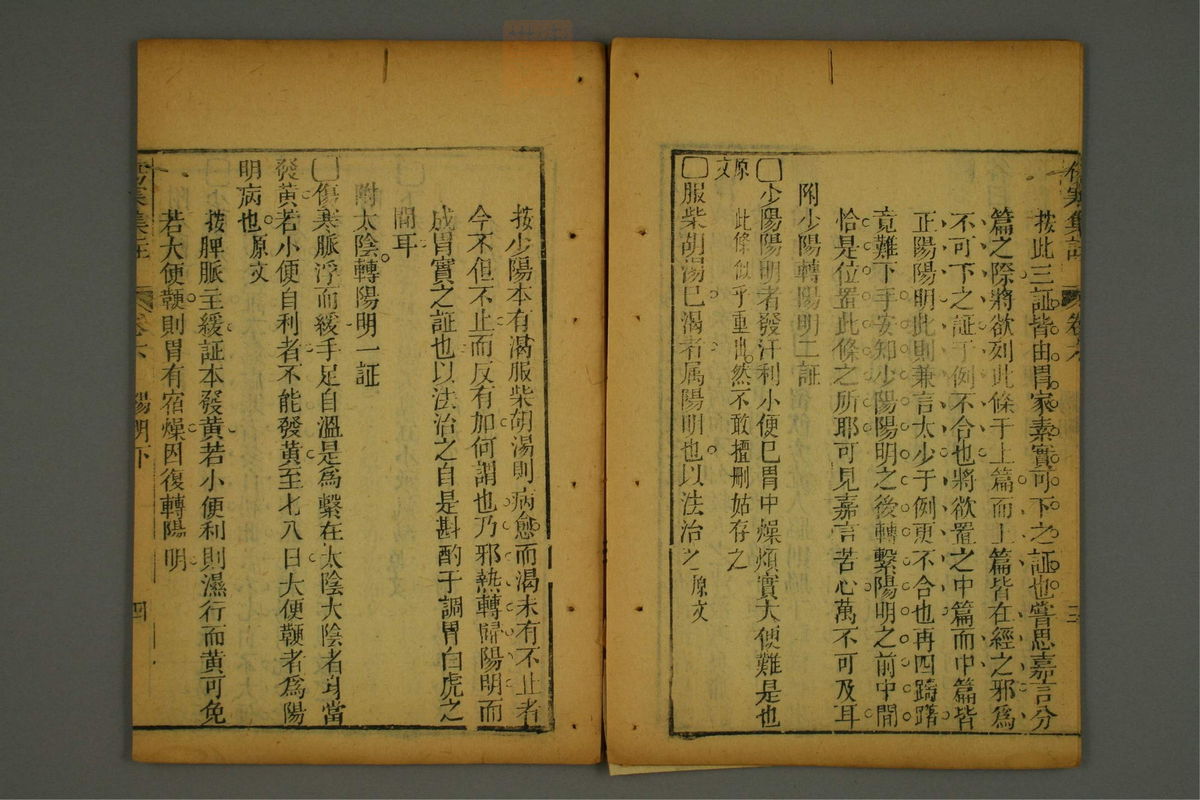 按此三証皆由胃家素實可下之証也嘗思嘉言分
篇之際將欲列此條于上篇而上篇皆在經之邪爲
不可下之証于例不合也將欲置之中篇而中篇皆
正陽陽明此則兼言太少于例更不合也再四躊躇
竟難下手安知少陽陽明之後轉繫陽明之前中間
恰是位置此條之所耶可見嘉言苦心萬不可及耳
附少陽轉陽明二証
少陽陽明者發汗利小便巳胃中燥煩實大便難是也
原文
此條似乎重出然不敢擅刪姑存之
服柴胡湯巳渴者属陽明也以法治之原文
按少陽本有渴服柴胡湯則病愈而渴未有不止者
今不但不止而反有加何謂也乃邪熱轉歸陽明而
成胃實之証也以法治之自是斟酌于調胃白虎之
間耳
附太陰轉陽明一証
傷寒脈浮而緩手足自溫是爲繫在太陰太陰者身當
發黃若小便自利者不能發黃至七八日大便鞕者爲陽
明病也原文
按脾脈主緩証本發黃若小便利則濕行而黃可免
若大便鞕則胃有宿燥因復轉陽明
陽明下
四